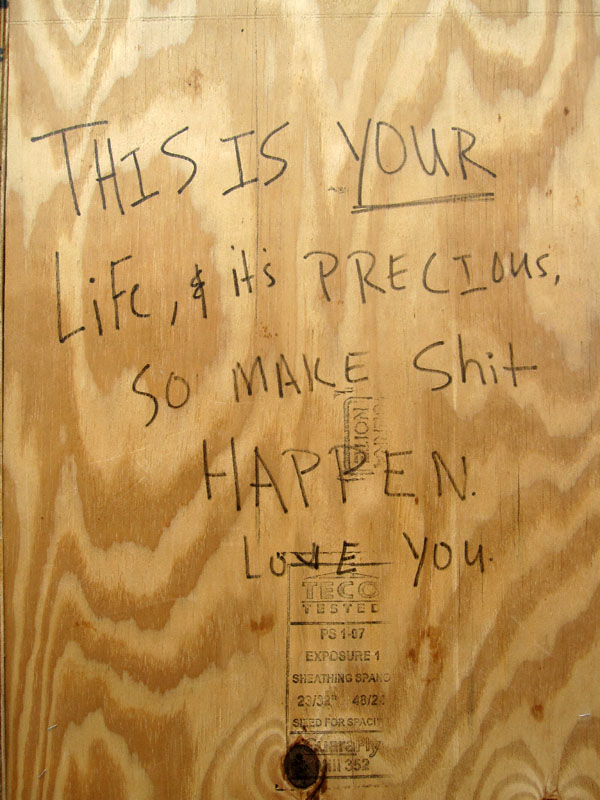 THIS IS YOUR
LiFe, & it's PRECIous,
SO MAKE Shit
HAPPEN.
LOVE YOU.
TECO
TESTED
PS 1-07
EXPOSURE 1
SHEATHING SPAN
23/32" 48/24
SIZED FOR SPACI
GuaraPly
Mill 352